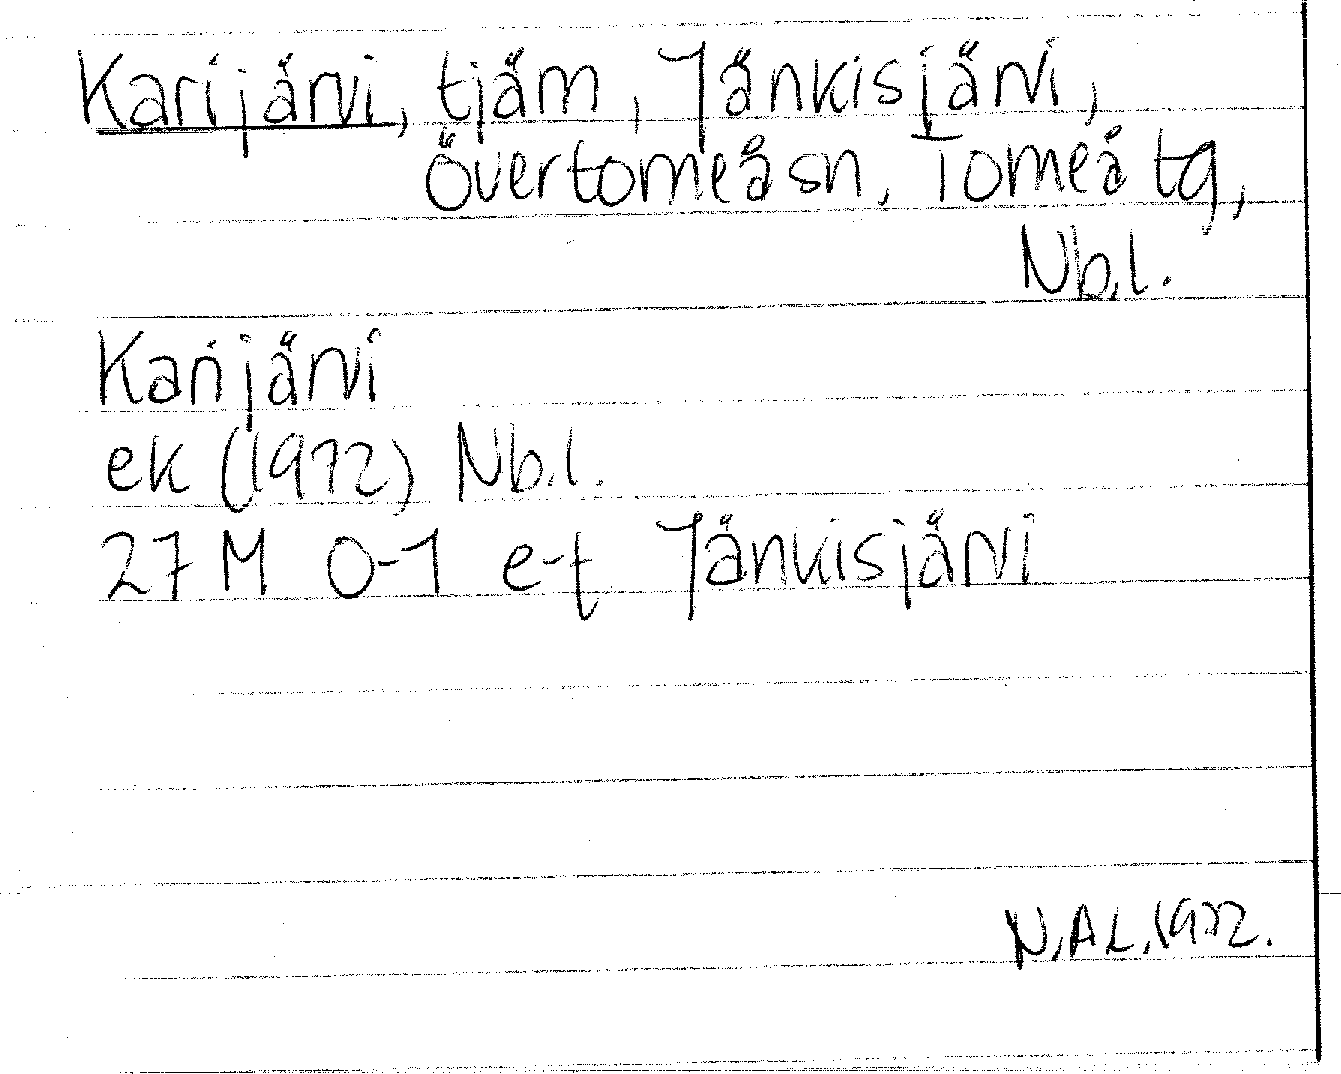 Karijärvi, tjärn, Jänkisjärvi,
Övertorneå sn, Torneå tg,
Nb.l.
Karijärvi
ek (1972) Nb.l.
27 M 0-1 e-f Jänkisjärvi
N.A.L. 1972.